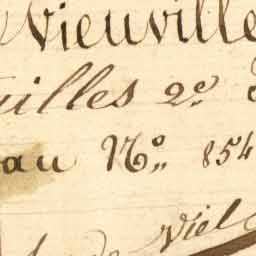 Vieuville
uilles 2º
au Nº. 854
Viel